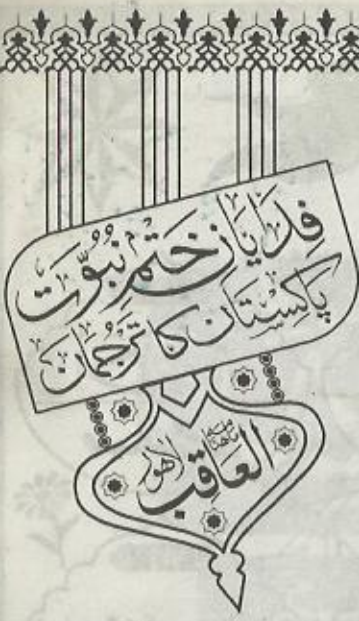 فِدایانِ ختمِ نبُوّت
پاکِستان کا ترجُمان
ماھنامہ العاقِب لاھور